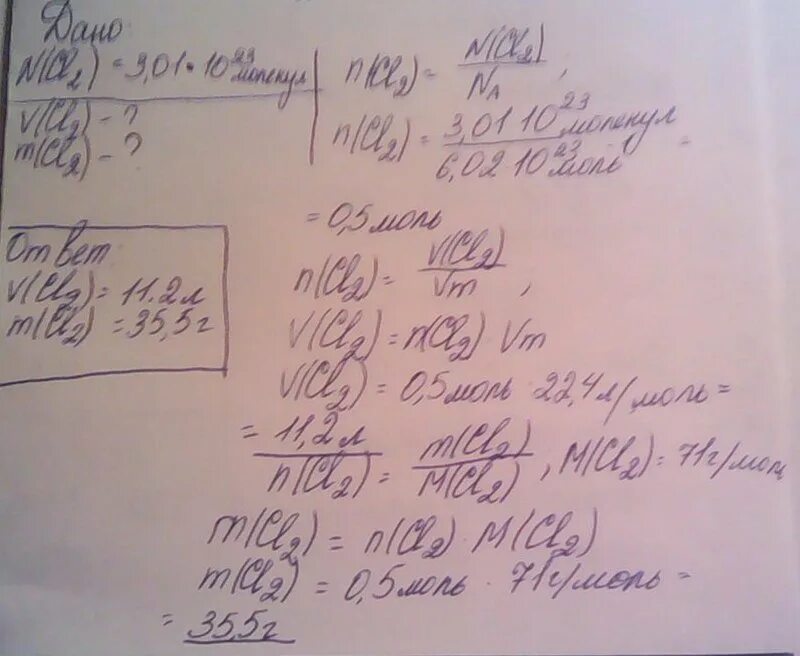 Дано:
N(Cl₂) = 3,01 · 10²³ молекул
V(Cl₂) - ?
m(Cl₂) - ?
n(Cl₂) = N(Cl₂) / Nᴀ ,
n(Cl₂) = 3,01 10²³ молекул / 6,02 · 10²³ моль =
= 0,5 моль
n(Cl₂) = V(Cl₂) / Vm ,
V(Cl₂) = n(Cl₂) Vm
V(Cl₂) = 0,5 моль · 22,4 л/моль =
= 11,2 л
n(Cl₂) = m(Cl₂) / M(Cl₂) , M(Cl₂) = 71 г/моль
m(Cl₂) = n(Cl₂) · M(Cl₂)
m(Cl₂) = 0,5 моль · 71 г/моль =
= 35,5 г
Ответ:
V(Cl₂) = 11.2 л
m(Cl₂) = 35,5 г